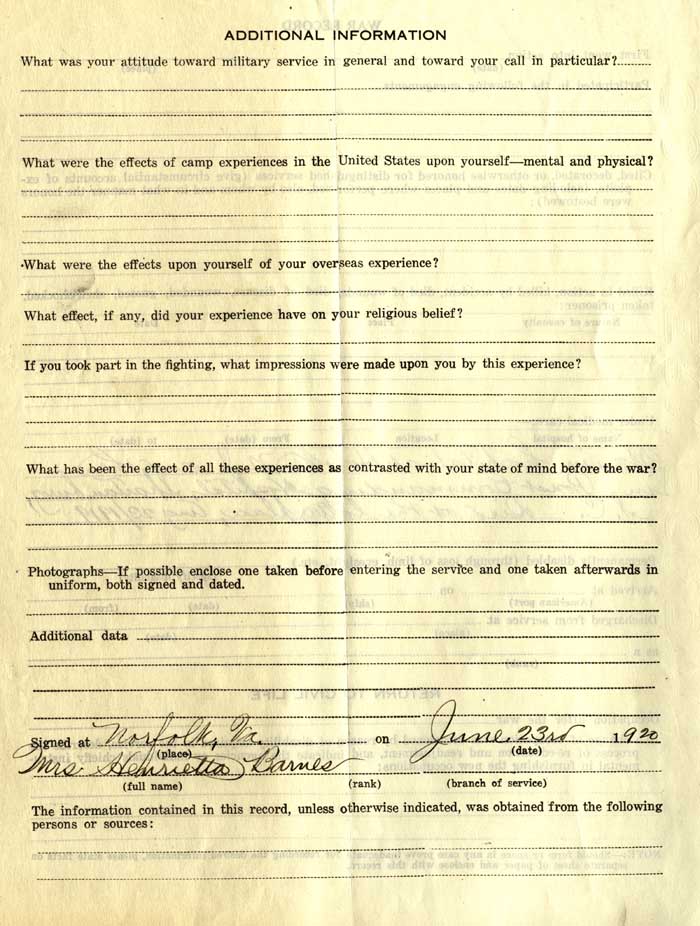 ADDITIONAL INFORMATION
What was your attitude toward military service in general and toward your call in particular?
What were the effects of camp experiences in the United States upon yourself—mental and physical?
What were the effects upon yourself of your overseas experience?
What effect, if any, did your experience have on your religious belief?
If you took part in the fighting, what impressions were made upon you by this experience?
What has been the effect of all these experiences as contrasted with your state of mind before the war?
Photographs—If possible enclose one taken before entering the service and one taken afterwards in
uniform, both signed and dated.
Additional data
Signed at Norfolk, Va. on June 23rd 1920
(place) (date)
Mrs. Henrietta Barnes
(full name) (rank) (branch of service)
The information contained in this record, unless otherwise indicated, was obtained from the following
persons or sources: